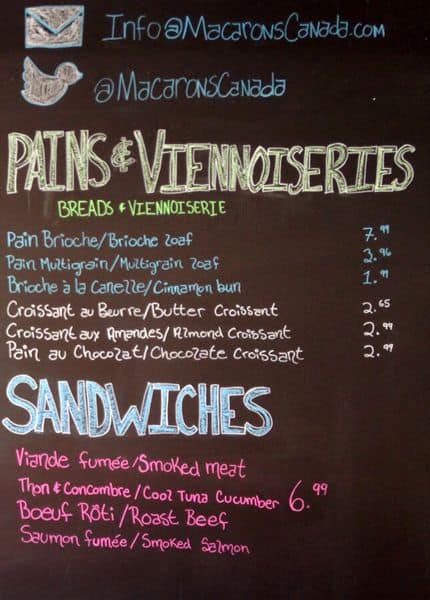 Info@MacaronsCanada.com
@MacaronsCanada
PAINS & VIENNOISERIES
BREADS & VIENNOISERIE
Pain Brioche/Brioche loaf 7.99
Pain Multigrain/Multigrain loaf 3.96
Brioche à la Canelle/Cinnamon bun 1.99
Croissant au Beurre/Butter Croissant 2.65
Croissant aux Amandes/Almond Croissant 2.99
Pain au Chocolat/Chocolate Croissant 2.99
SANDWICHES
Viande fumée/Smoked meat
Thon & Concombre/Cool Tuna Cucumber 6.99
Boeuf Rôti/Roast Beef
Saumon fumée/Smoked Salmon